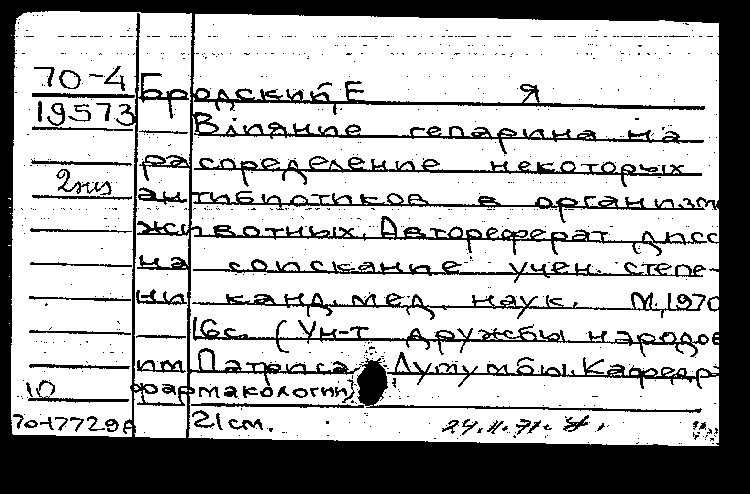 70-4
19573
2 экз
Бродский, Е Я
Влияние гепарина на
распределение некоторых
антибиотиков в организм
животных. Автореферат дисс
на соискание учен. степе-
ни канд. мед. наук. М., 1970
16с. (Ун-т дружбы народов
им. Патриса Лумумбы. Кафедр
10 фармакологии)
70-17729а 21 см. 24.II.71.